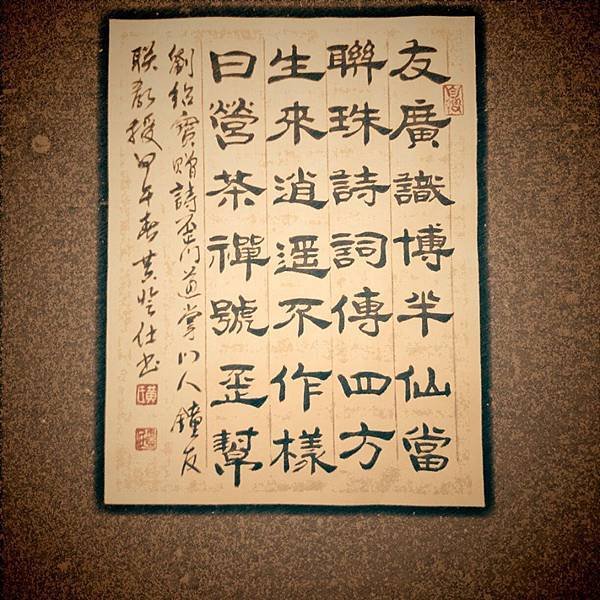 友廣識博半仙當
聯珠詩詞傳四方
生來逍遥不作樣
日營茶禪號歪幫
劉紹寶贈詩歪门道掌门人鐘友
联教授甲午春黄仕书